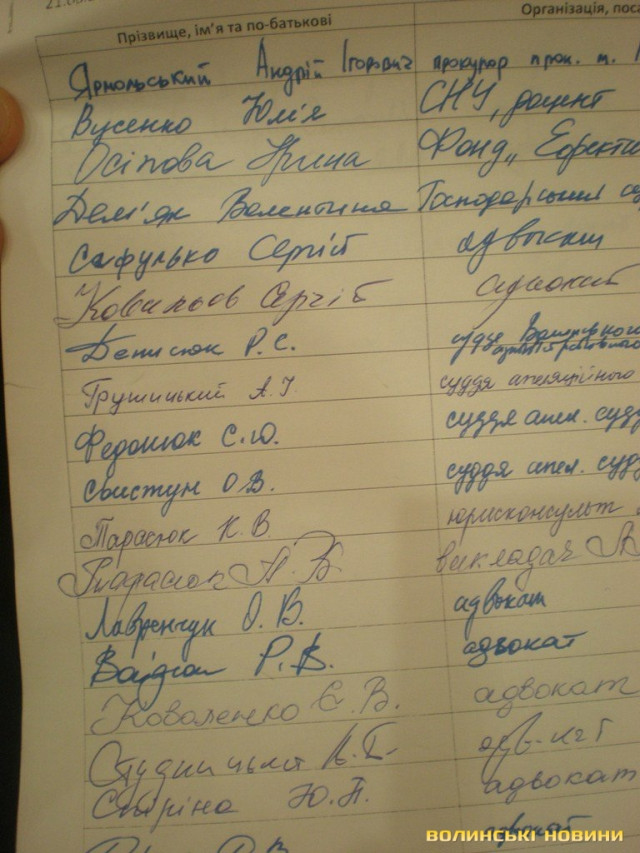 21.0
Прізвище, ім'я та по-батькові Організація, поса
Ярмольський Андрій Ігорович прокурор прок. м.
Вусенко Юлія СНУ, доцент
Осіпова Ірина Фонд „Ефекти
Дем'як Валентина Господарський су
Сафулько Сергій адвокат
Ковальов Сергій адвокат
Денисюк Р.С. суддя
Грушицький А.І. суддя апеляційного
Федонюк С.Ю. суддя апел. суду
Свистун О.В. суддя апел. суду
Тарасюк К.В. юрисконсульт
Тарасюк А.В. викладач
Лавренчук О.В. адвокат
Р.В. адвокат
Коваленко Є.В. адвокат
Ю.П. адвокат
адвокат
ВОЛИНСЬКІ НОВИНИ